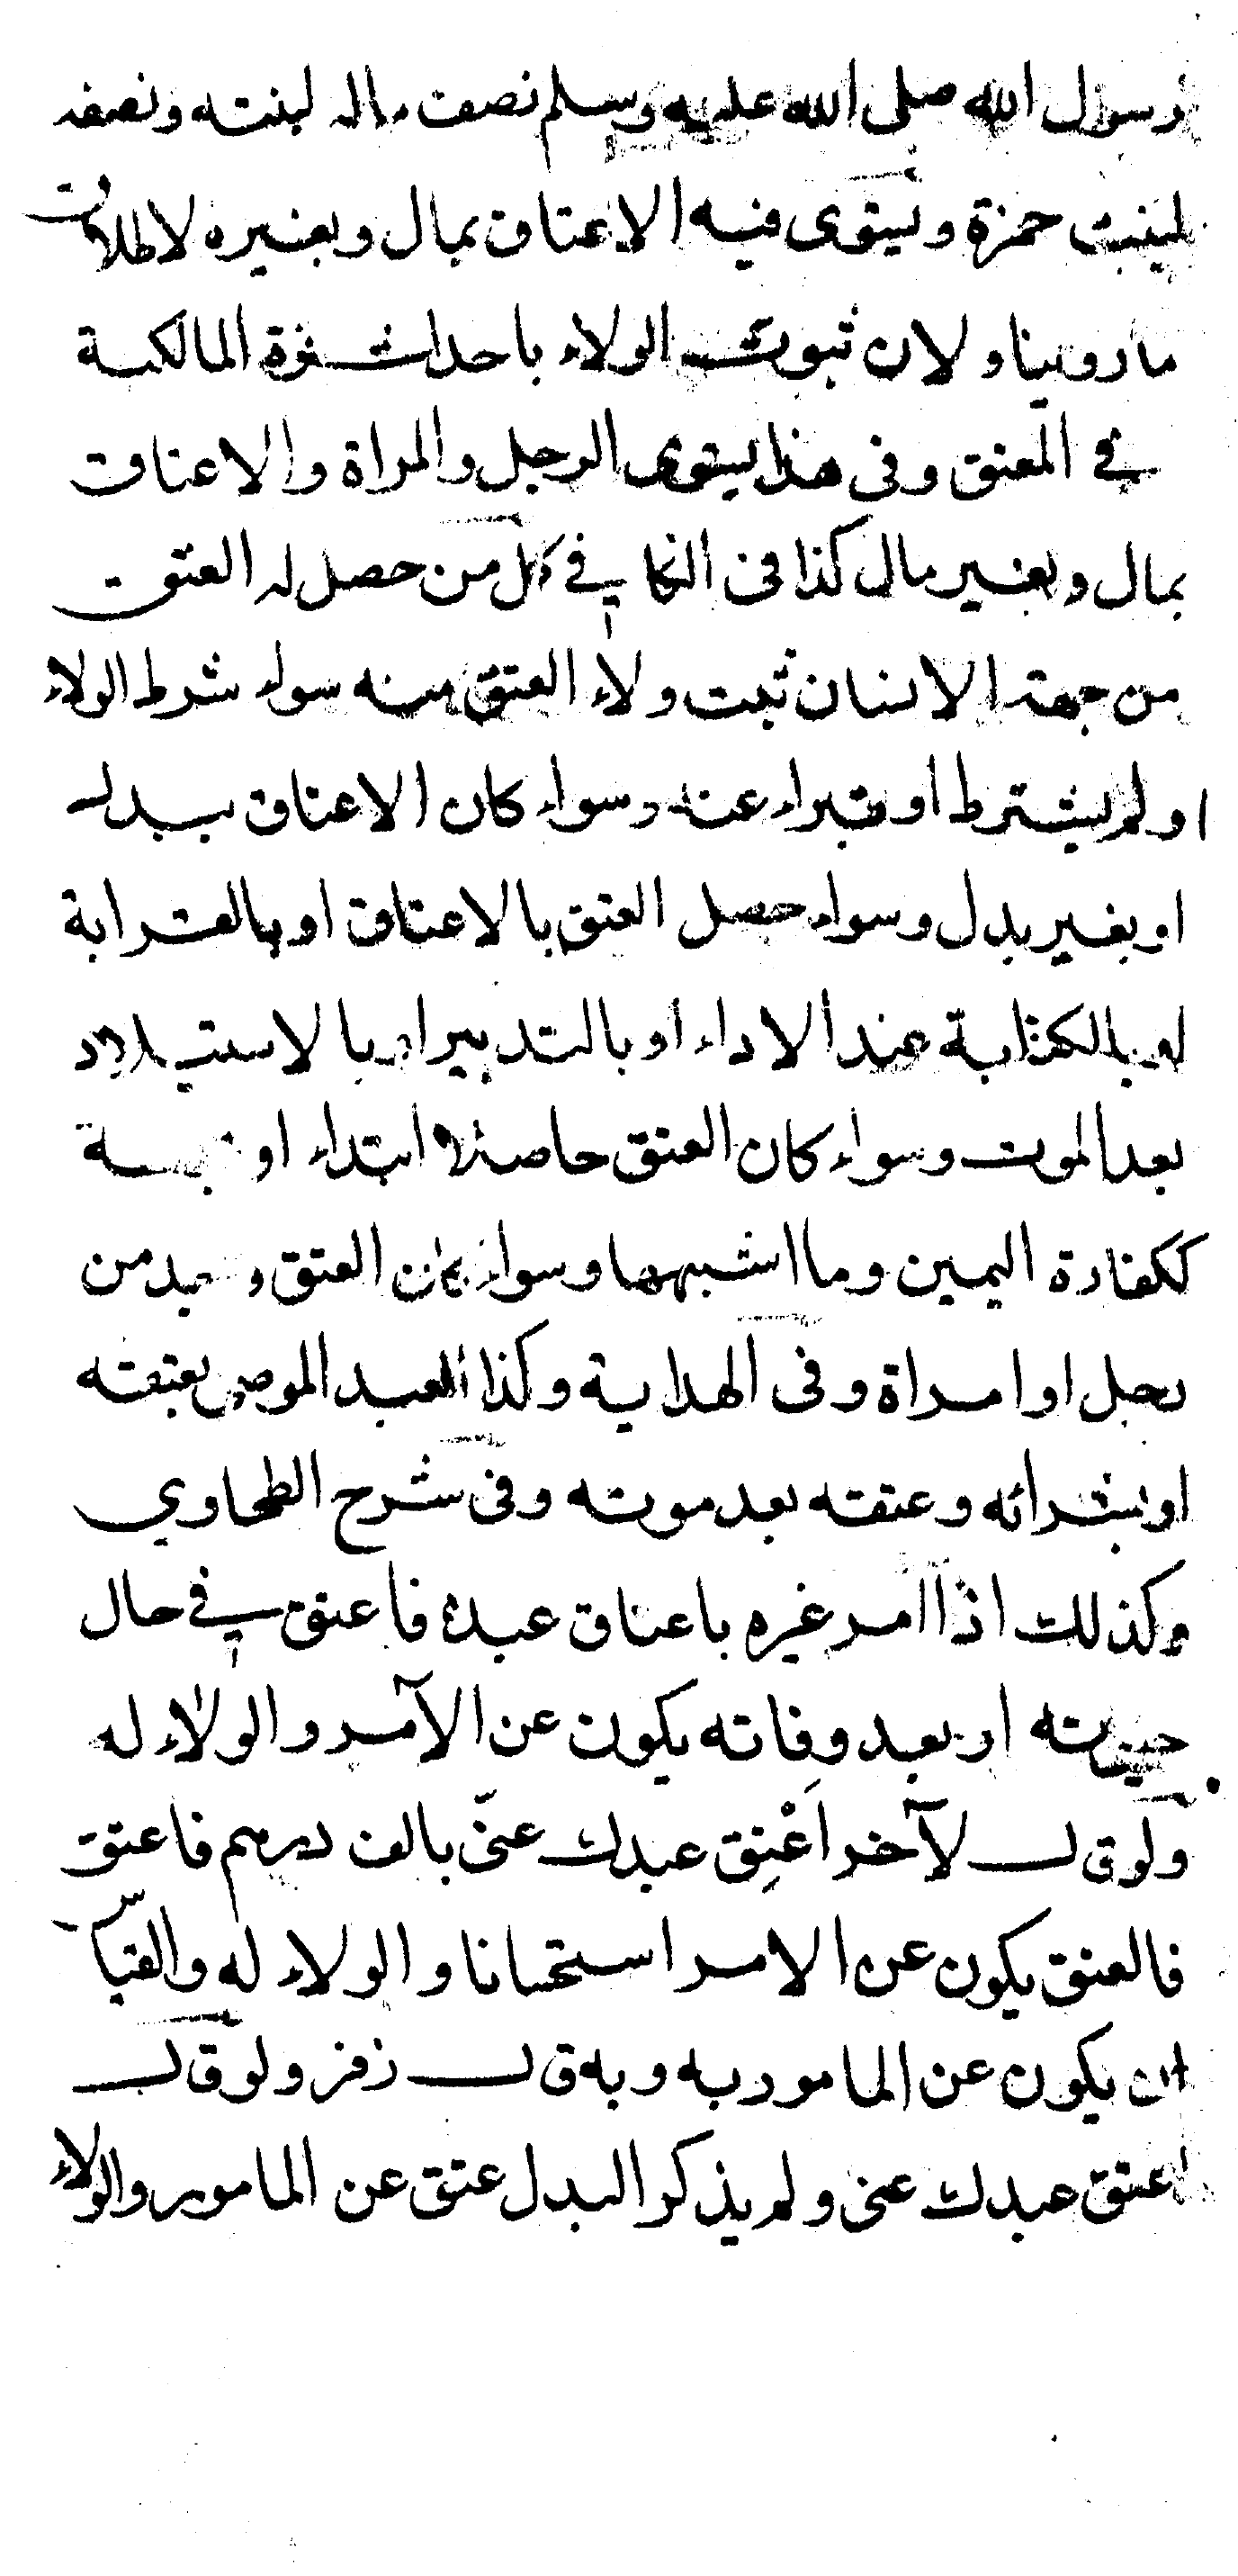 رسول الله صلى الله عليه وسلم نصف ماله لبنته ونصفه
لبنت حمزة ويستوى فيه الاعتاق بمال وبغيره لاطلاق
ماروينا ولان ثبوت الولاء باحداث قوة المالكية
في المعتق وفى هذا يستوى الرجل والمراة والاعتاق
بمال وبغير مال كذا فى الكافي كل من حصل له العتق
من جهة الانسان ثبت ولاء العتق منه سواء شرط الولاء
اولم يشترط او تبراء عنه وسواء كان الاعتاق ببدل
او بغير بدل وسواء حصل العتق بالاعتاق او بالقرابة
او بالكتابة عند الاداء او بالتدبير او بالاستيلاد
بعد الموت وسواء كان العتق حاصلا ابتداء او
ككفارة اليمين وما اشبهها وسواء كان العتق من
رجل او امراة وفى الهداية وكذا العبد الموصى بعتقه
او بشرائه وعتقه بعد موته وفى شرح الطحاوي
وكذلك اذا امر غيره باعتاق عبده فاعتق في حال
حيوته او بعد وفاته يكون عن الآمر والولاء له
ولو قال لآخر اعْتِق عبدك عنّى بالف درهم فاعتق
فالعتق يكون عن الامر استحسانا والولاء له والقياس
ان يكون عن المامور به وبه قال زفر ولو قال
اعتق عبدك عنى ولم يذكر البدل عتق عن المامور والولاء